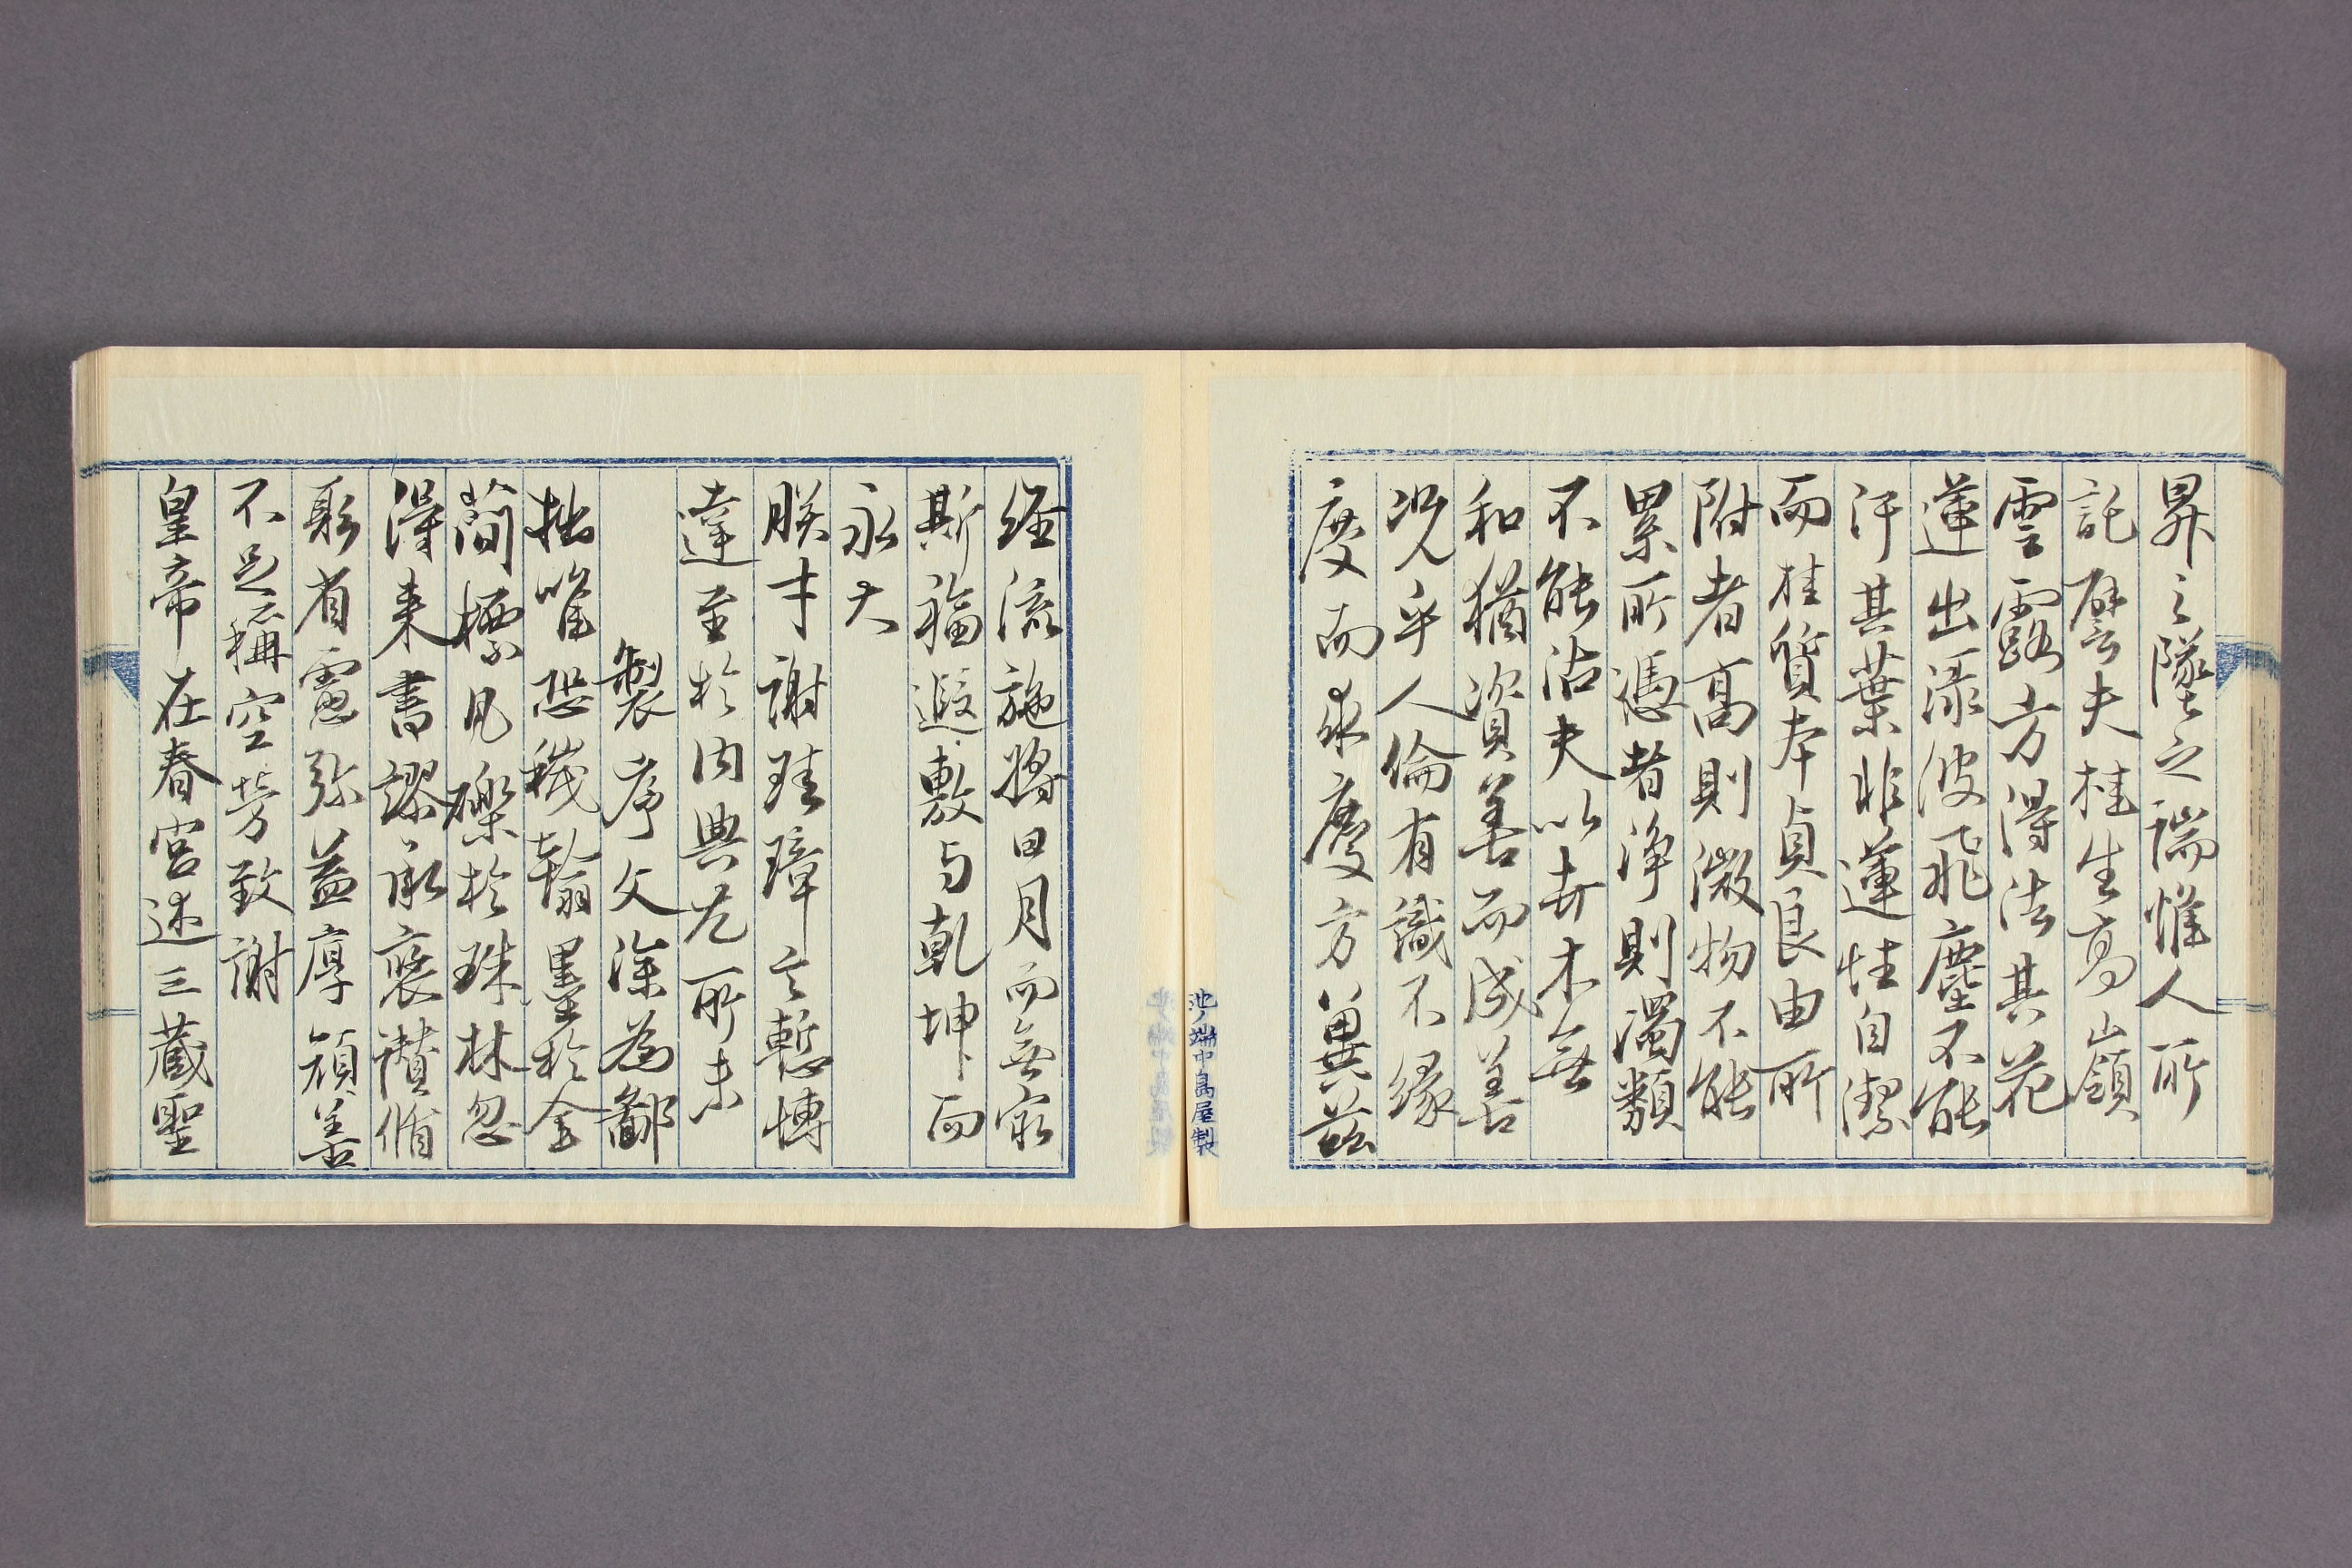 昇之墜之端惟人所
託譬夫桂生高嶺
雲露方得泫其花
蓮出淥波飛塵不能
汙其葉非蓮性自潔
而桂質本貞良由所
附者高則微物不能
累所憑者淨則濁類
不能沾夫以卉木無
知猶資善而成善
況乎人倫有識不緣
慶而求慶方冀茲
池ノ端中島屋製
經流施將日月而無窮
斯福遐敷与乾坤而
永大
朕才謝珪璋言慙博
達至於内典尤所未
製序文深為鄙
拙唯恐穢翰墨於金
簡標凡礫於珠林忽
得来書謬承褒讃循
躬省慮弥益厚顔善
不足稱空勞致謝
皇帝在春宮述三藏聖